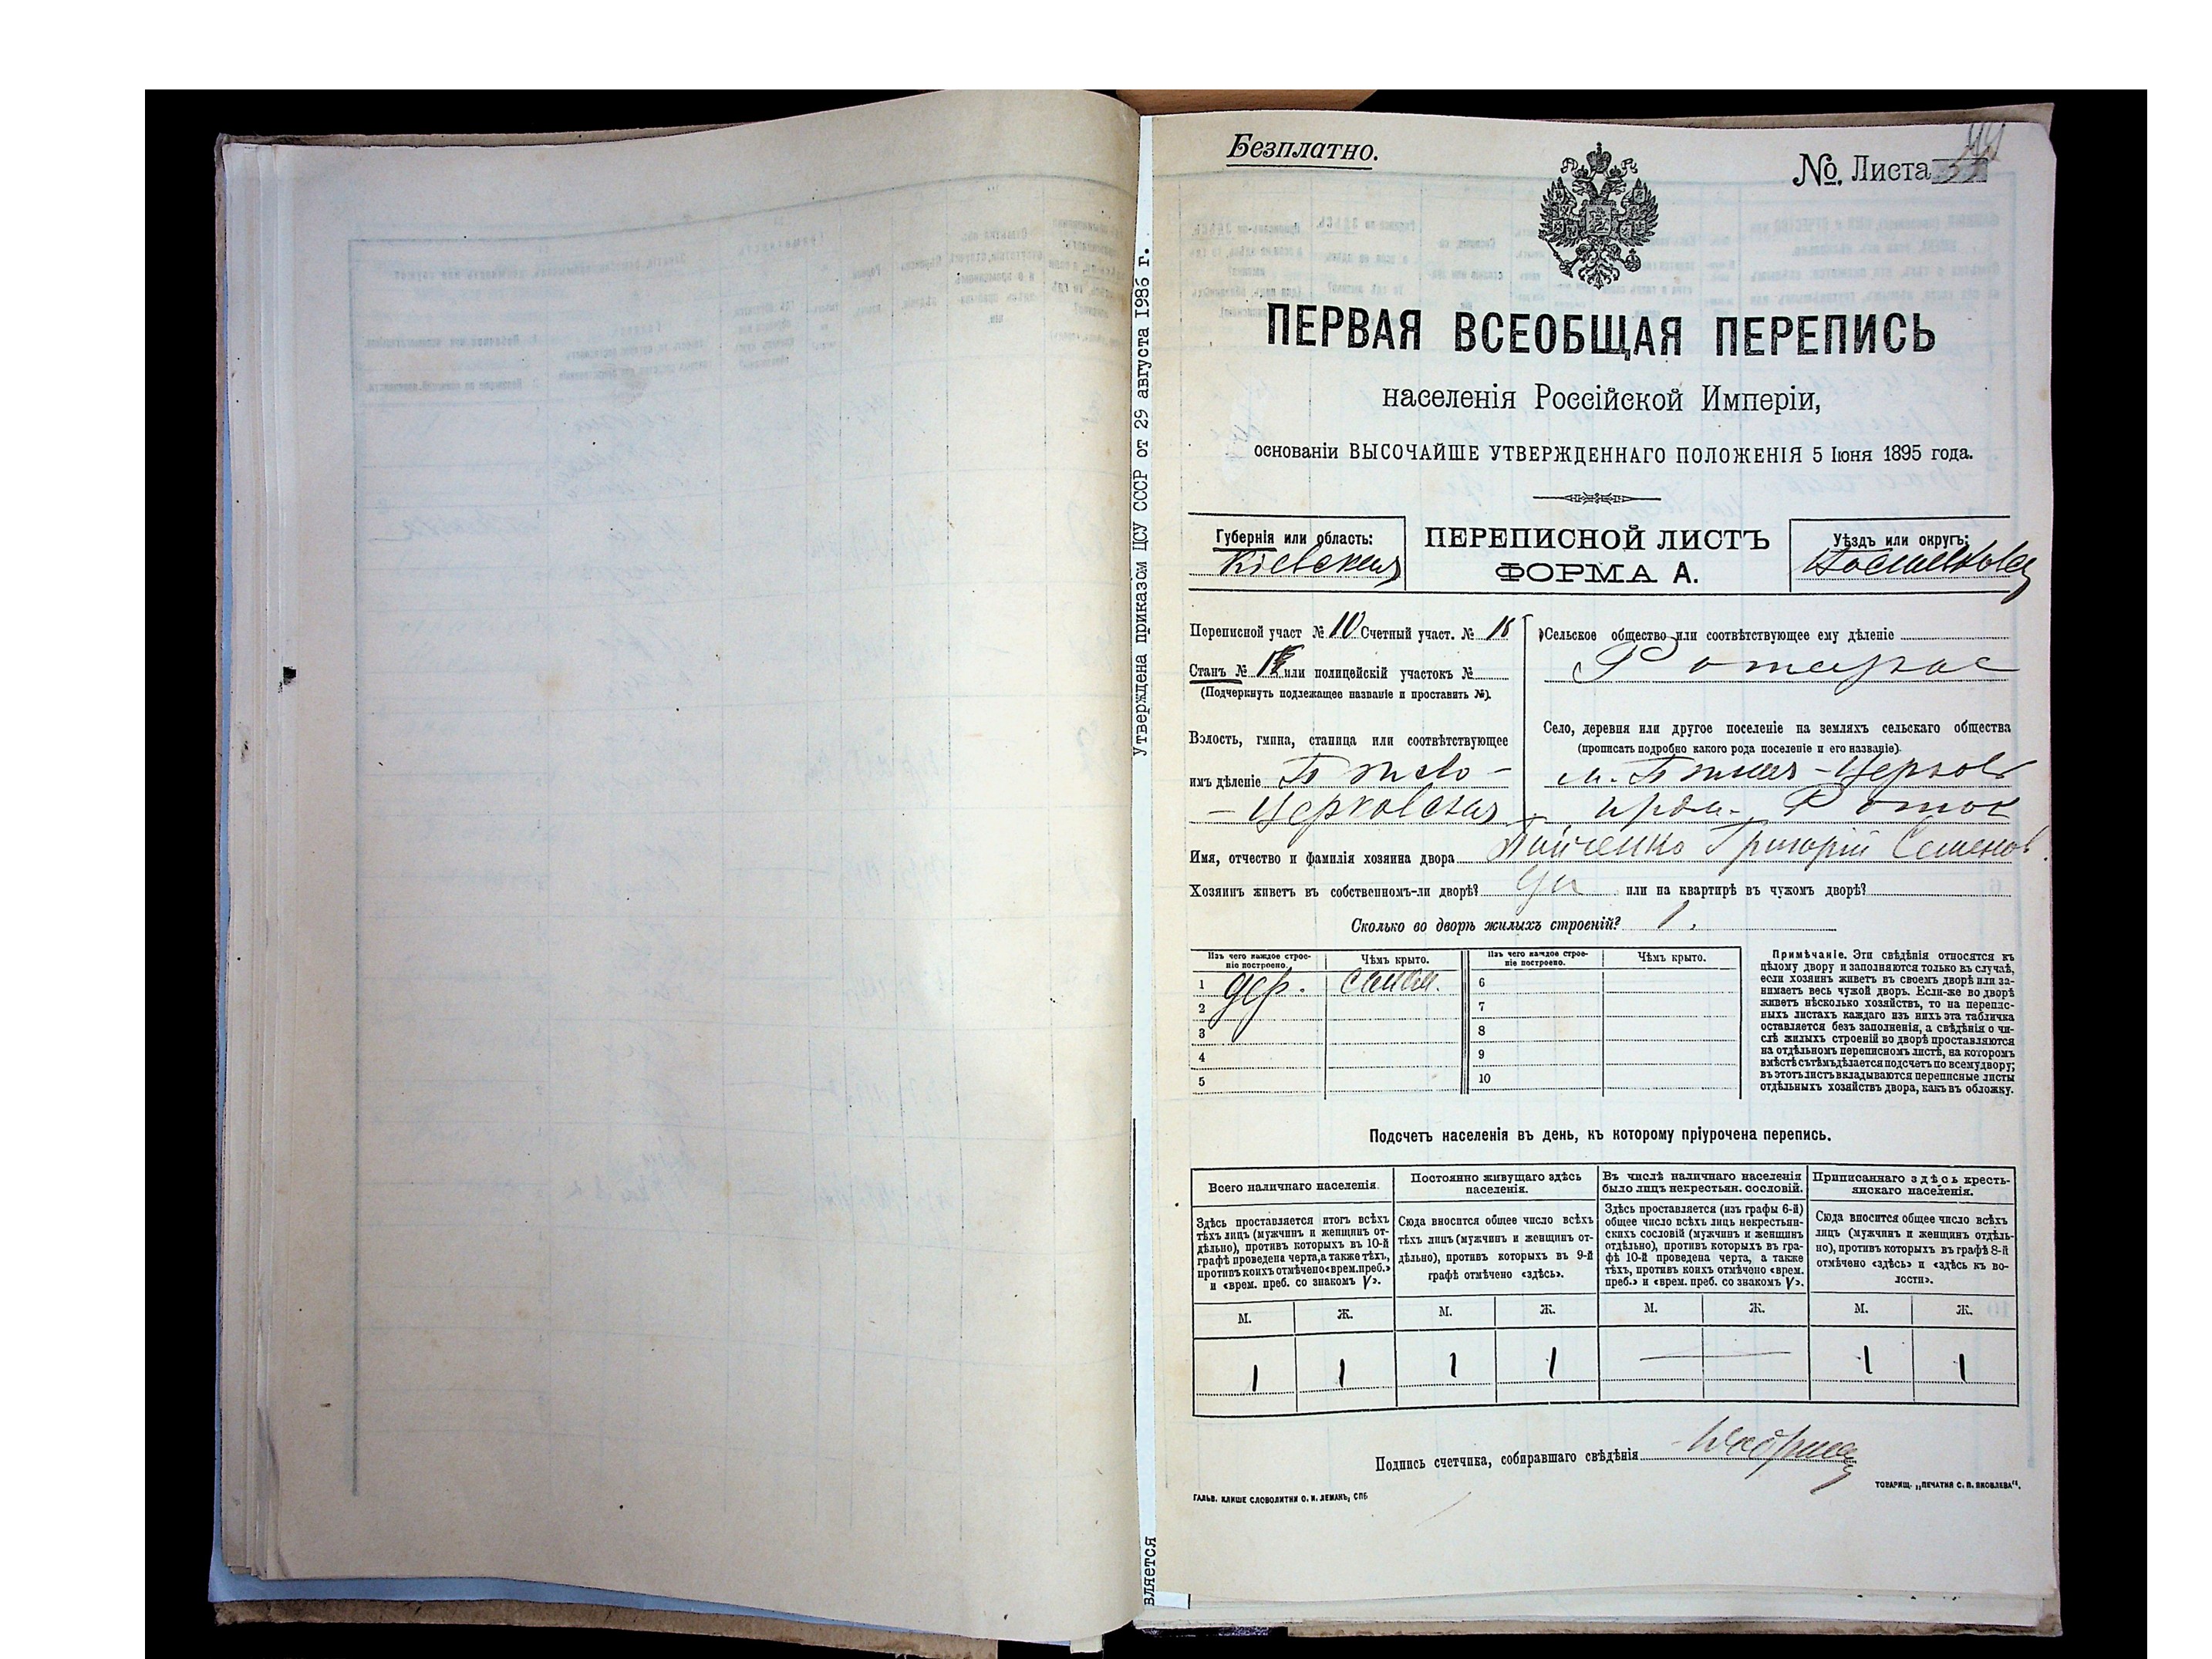 Безплатно.
№ Листа
ПЕРВАЯ ВСЕОБЩАЯ ПЕРЕПИСЬ
населенія Россійской Имперіи,
основаніи ВЫСОЧАЙШЕ УТВЕРЖДЕННАГО ПОЛОЖЕНІЯ 5 Іюня 1895 года.
Губернія или область:
Кіевская
ПЕРЕПИСНОЙ ЛИСТЪ
ФОРМА А.
Уѣздъ или округъ:
Переписной участ № 10 Счетный участ. №
Станъ № или полицейскій участокъ №
(Подчеркнуть подлежащее названіе и проставить №).
Волость, гмина, станица или соотвѣтствующее
имъ дѣленіе Бѣло-
-Церковская
Сельское общество или соотвѣтствующее ему дѣленіе
Село, деревня или другое поселеніе на земляхъ сельскаго общества
(прописать подробно какого рода поселеніе и его названіе).
м. Бѣлая-Церковь
Роток
Имя, отчество и фамилія хозяина двора Григорій Семенов.
Хозяинъ живетъ въ собственномъ-ли дворѣ? Да или на квартирѣ въ чужомъ дворѣ?
Сколько во дворѣ жилыхъ строеній? 1.
Изъ чего каждое строе-
ніе построено.
Чѣмъ крыто.
Изъ чего каждое строе-
ніе построено.
Чѣмъ крыто.
1 дер. солом. 6
2 7
3 8
4 9
5 10
Примѣчаніе. Эти свѣдѣнія относятся къ
цѣлому двору и заполняются только въ случаѣ,
если хозяинъ живетъ въ своемъ дворѣ или за-
нимаетъ весь чужой дворъ. Если-же во дворѣ
живетъ нѣсколько хозяйствъ, то на перепис-
ныхъ листахъ каждаго изъ нихъ эта табличка
оставляется безъ заполненія, а свѣдѣнія о чи-
слѣ жилыхъ строеній во дворѣ проставляются
на отдѣльномъ переписномъ листѣ, на которомъ
вмѣстѣ съ тѣмъ дѣлается подсчетъ по всему двору;
въ этотъ листъ вкладываются переписные листы
отдѣльныхъ хозяйствъ двора, какъ въ обложку.
Подсчетъ населенія въ день, къ которому пріурочена перепись.
Всего наличнаго населенія.
Здѣсь проставляется итогъ всѣхъ
тѣхъ лицъ (мужчинъ и женщинъ от-
дѣльно), противъ которыхъ въ 10-й
графѣ проведена черта, а также тѣхъ,
противъ коихъ отмѣчено «врем. преб.»
и «врем. преб. со знакомъ V».
Постоянно живущаго здѣсь
населенія.
Сюда вносится общее число всѣхъ
тѣхъ лицъ (мужчинъ и женщинъ от-
дѣльно), противъ которыхъ въ 9-й
графѣ отмѣчено «здѣсь».
Въ числѣ наличнаго населенія
было лицъ некрестьян. сословій.
Здѣсь проставляется (изъ графы 6-й)
общее число всѣхъ лицъ некрестьян-
скихъ сословій (мужчинъ и женщинъ
отдѣльно), противъ которыхъ въ гра-
фѣ 10-й проведена черта, а также
тѣхъ, противъ коихъ отмѣчено «врем.
преб.» и «врем. преб. со знакомъ V».
Приписаннаго здѣсь кресть-
янскаго населенія.
Сюда вносится общее число всѣхъ
лицъ (мужчинъ и женщинъ отдѣль-
но), противъ которыхъ въ графѣ 8-й
отмѣчено «здѣсь» и «здѣсь къ во-
лости».
М. Ж. М. Ж. М. Ж. М. Ж.
1 1 1 1 1 1
Подпись счетчика, собиравшаго свѣдѣнія
ГАЛЬВ. КЛИШЕ СЛОВОЛИТНИ О. И. ЛЕМАНЪ, СПБ
ТОВАРИЩ. „ПЕЧАТНЯ С. П. ЯКОВЛЕВА“.
Утверждена приказом ЦСУ СССР от 29 августа 1986 г.
вляется